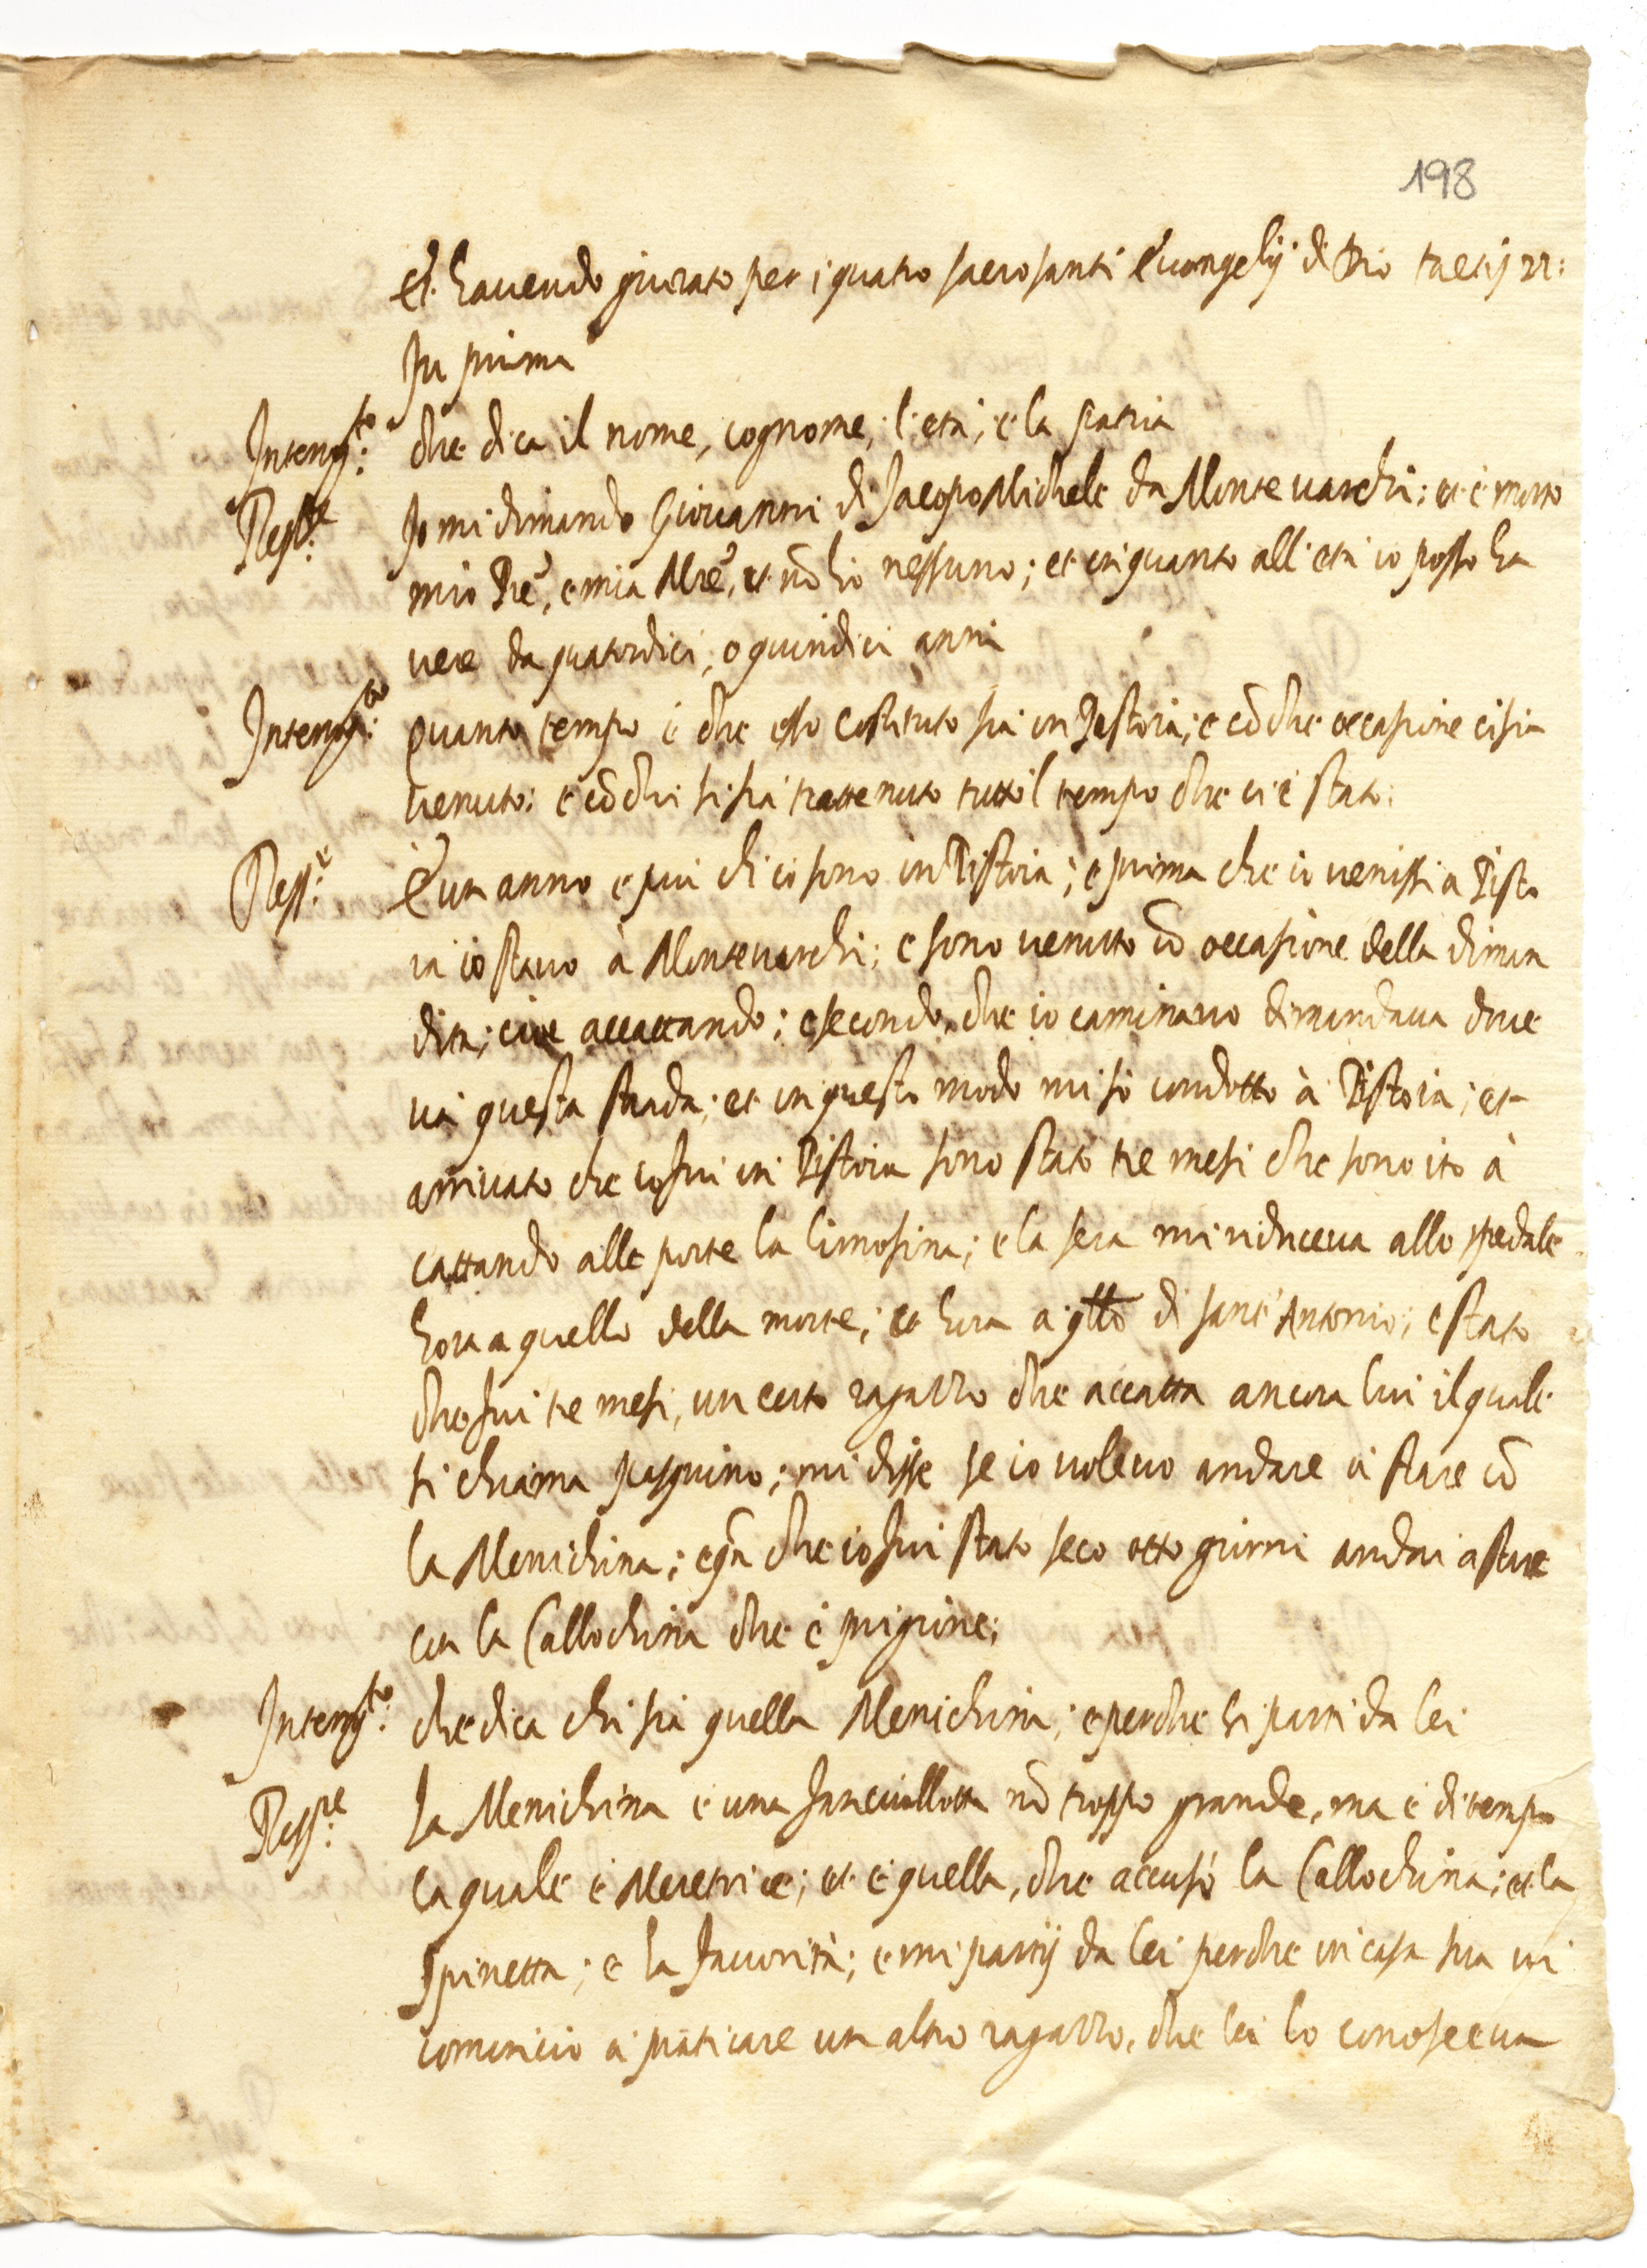 198
Et havendo giurato per i quatro sacrosanti Evangelij di Dio tactis rr:
In prima
Interrog.to: che dica il nome, cognome, l'età, e la patria
Resp.e: Io mi dimando Giovanni di Jacopo Michele da Monte varchi; et è morto
mio Pre, e mia Mre, et nō hò nessuno; et in quanto all'età io posso ha
vere da quatordici, o quindici anni
Interrog.to: quanto tempo è che esso costituto sia in Pistoia; e cō che occasione ci sia
venuto: e cō chi si sia trattenuto tutto l tempo che ci è stato:
Resp.e: È un anno e piu ch' io sono in Pistoia; e prima che io venissi a Pisto
ia io stavo à Montevarchi; e sono venutto cō occasione della diman
dita, cioè accattando; e secondo che io caminavo dimandava dove
và questa strada; et in questo modo mi sò condotto à Pistoia; et
arrivato che io fui in Pistoia sono stato tre mesi che sono ito à
cattando alle porte la limosina; e la sera mi riduceva allo spedale
hora a quello della morte; et hora a qllo di sant' Antonio; e stato
che fui tre mesi, un certo ragazzo che accatta ancora lui il quale
si chiama pasquino; mi disse se io volevo andare à stare cō
la Menichina; e qn che io fui stato seco otto giorni andai a stare
con la Callochina che è prigione;
Interrog.to: che dica chi sia quella Menichina; e perche si parti da lei
Resp.re: La Menichina è una fanciullotta nō troppo grande, ma è di tempo
la quale è Meretrice; et è quella, che accusò la Callochina; et la
Spinetta; e la Favorità; e mi partij da lei perche in casa sua vi
cominciò à pràticare un altro ragazzo, che lei lo conosceva